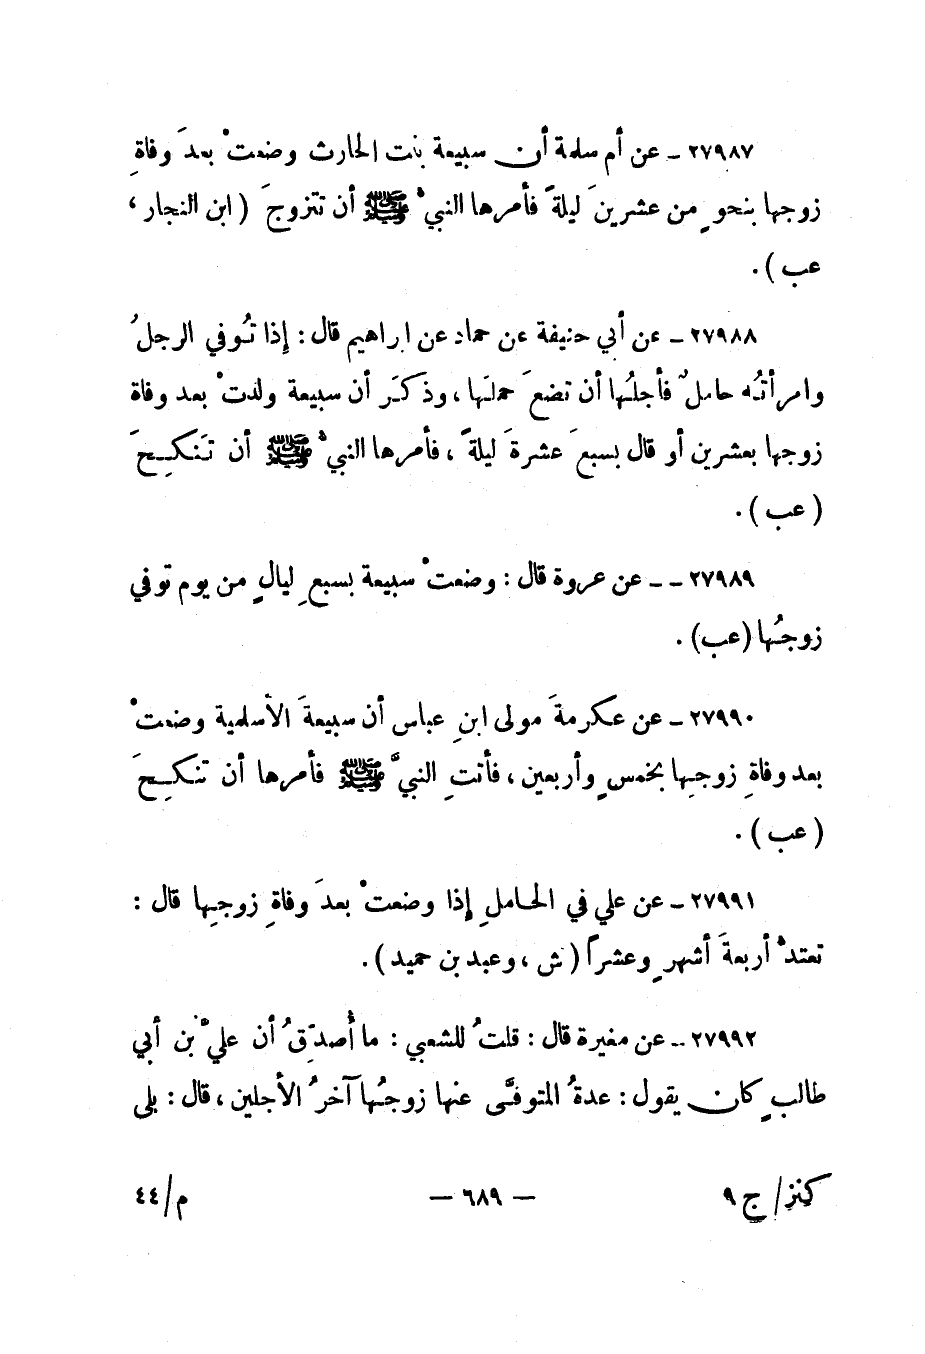 ٢٧٩٨٧ ـ عن أم سلمة أن سبيعة بنت الحارث وضعتْ بعدَ وفاةِ
زوجها بنحوٍ من عشرينَ ليلةً فأمرها النبيُّ ﷺ أن تتزوجَ ( ابن النجار ،
عب ) .
٢٧٩٨٨ ـ عن أبي حنيفة عن حماد عن ابراهيم قال : إذا تُوفي الرجلُ
وامرأتُه حاملٌ فأجلُها أن تضعَ حملَها ، وذكَر أن سبيعة ولدتْ بعد وفاة
زوجها بعشرين أو قال بسبعَ عشرةَ ليلةً ، فأمرها النبيُّ ﷺ أن تَنكِحَ
( عب ) .
٢٧٩٨٩ ـ ـ عن عروة قال : وضعتْ سبيعة بسبعِ ليالٍ من يوم توفي
زوجُها (عب) .
٢٧٩٩٠ ـ عن عكرمةَ مولى ابنِ عباس أن سبيعةَ الأسلمية وضعتْ
بعد وفاةِ زوجِها بخمسٍ وأربعين ، فأتتِ النبيَّ ﷺ فأمرها أن تنكِحَ
( عب ) .
٢٧٩٩١ ـ عن علي في الحاملِ إذا وضعتْ بعدَ وفاةِ زوجِها قال :
تعتدُّ أربعةَ أشهرٍ وعشراً ( ش ، وعبد بن حميد ) .
٢٧٩٩٢ ـ عن مغيرة قال : قلتُ للشعبي : ما أُصدِّقُ أن عليَّ بن أبي
طالبٍ كان يقول : عدةُ المتوفَّى عنها زوجُها آخرُ الأجلين ، قال : بلى
كنز/ ج ٩ — ٦٨٩ — م/٤٤